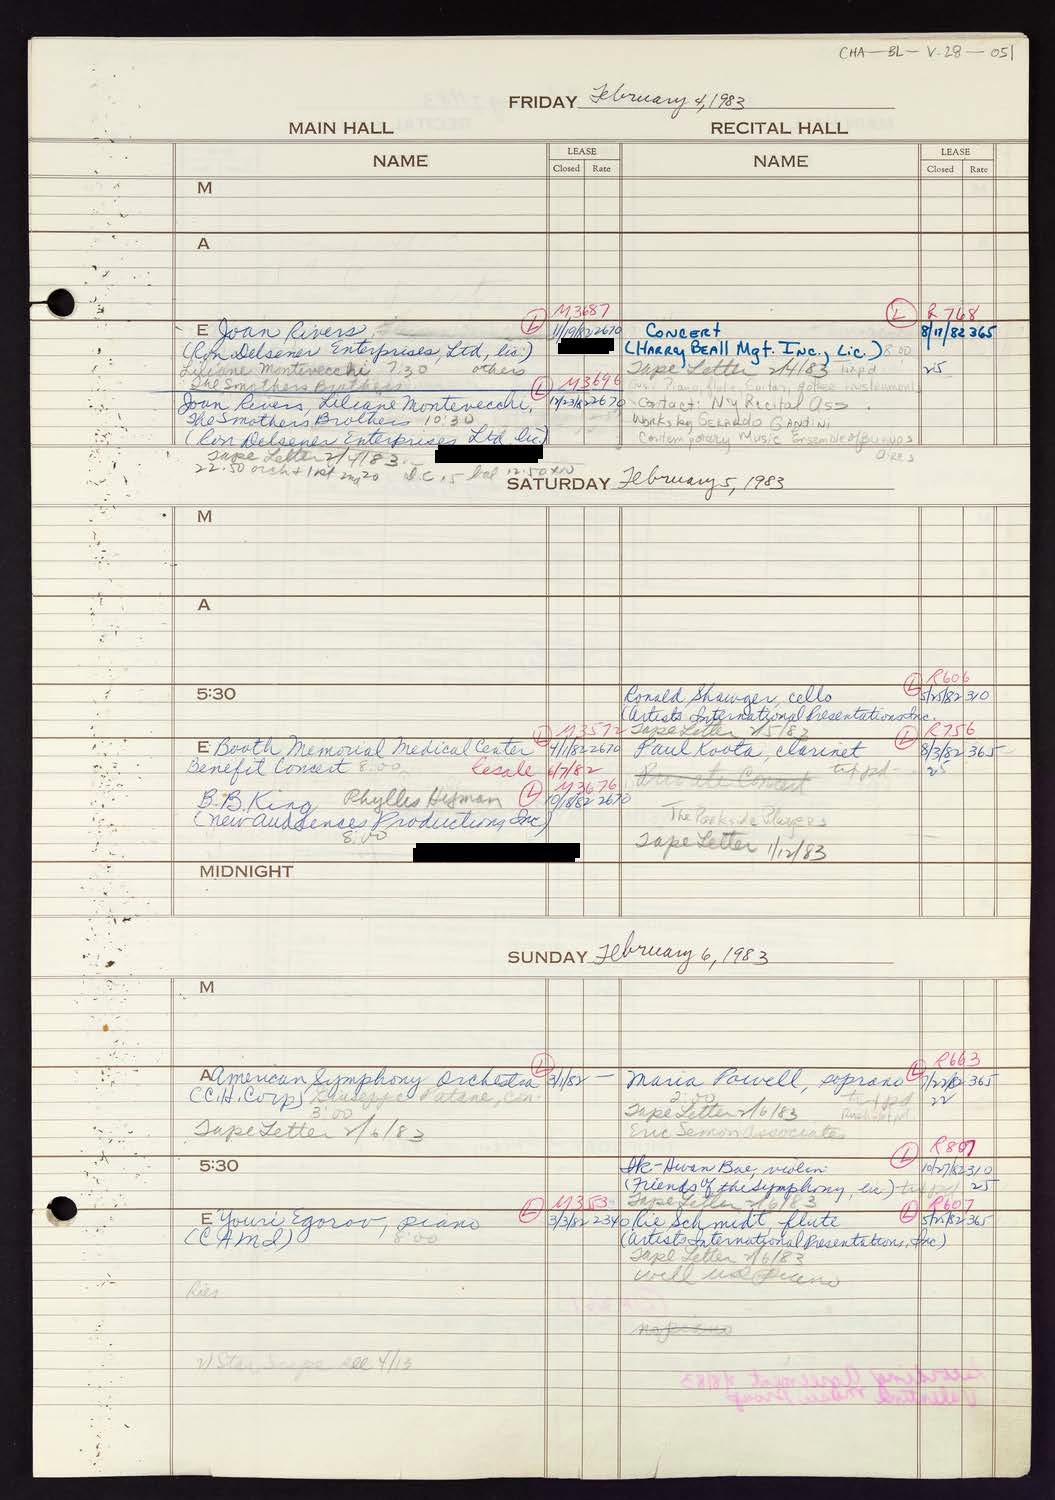 CHA-BL-V.28-051
FRIDAY February 4, 1983
MAIN HALL
RECITAL HALL
NAME
LEASE
Closed Rate
NAME
LEASE
Closed Rate
M
A
L M3687
L R768
E Joan Rivers 11/19/82 2670
(Ron Delsener Enterprises, Ltd, lic.)
Liliane Montevecchi 7:30 others
The Smothers Brothers
L M3696
Joan Rivers, Liliane Montevecchi, 12/23/82 2670
The Smothers Brothers 10:30
(Ron Delsener Enterprises Ltd lic.)
Tape Letter 2/4/83
22.50 orch + 1st 2nd 20
CONCERT 8/17/82 365
(HARRY BEALL Mgt. INC., Lic.) 8:00
Tape Letter 2/4/83 25
Contact: NY Recital Ass
Works by GERARDO GANDINI
Contemporary Music Ensemble of Buenos
Aires
SATURDAY February 5, 1983
M
A
5:30
L R606
Ronald Shawger, cello 5/25/82 310
(Artists International Presentations Inc.
Tape Letter 2/5/83
L M3572
L R756
E Booth Memorial Medical Center 4/1/82 2670
Benefit Concert 8:00 Resale 6/7/82
L M3676
B.B. King Phyllis Hyman 10/18/82 2670
(New Audiences Productions, Inc)
8:00
Paul Roota, clarinet 8/3/82 365
Private Concert txt pd 25
The Parkside Players
Tape Letter 1/12/83
MIDNIGHT
SUNDAY February 6, 1983
M
L
L R663
A American Symphony Orchestra 3/1/82 —
(C.H. Corp) Giuseppe Patane, con.
3:00
Tape Letter 2/6/83
Maria Powell, soprano 7/27/82 365
2:00 txt pd 22
Tape Letter 2/6/83
Eric Semon Associates
5:30
L R807
Ik-Hwan Bae, violin 10/27/82 310
(Friends of the Symphony, lic) 25
Tape Letter 2/6/83
L M353
L R607
E Youri Egorov, piano 3/3/82 2340
(CAMI) 8:00
Rie Schmidt, flute 5/25/82 365
(Artists International Presentations, Inc)
Tape Letter 2/6/83
will use piano
no piano
see 4/13